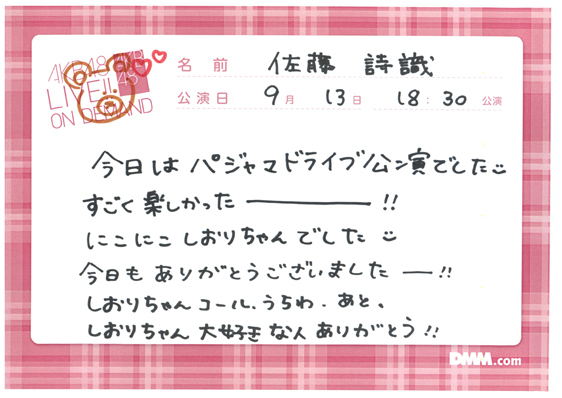 AKB48
LIVE!!
ON DEMAND
名前 佐藤 詩識
公演日 9月 13日 18:30 公演
今日は パジャマドライブ公演でした
すごく 楽しかった ー !!
にこにこ しおりちゃん でした
今日も ありがとうございました ー !!
しおりちゃん コール、うちわ、あと、
しおりちゃん 大好き な人 ありがとう !!
DMM.com